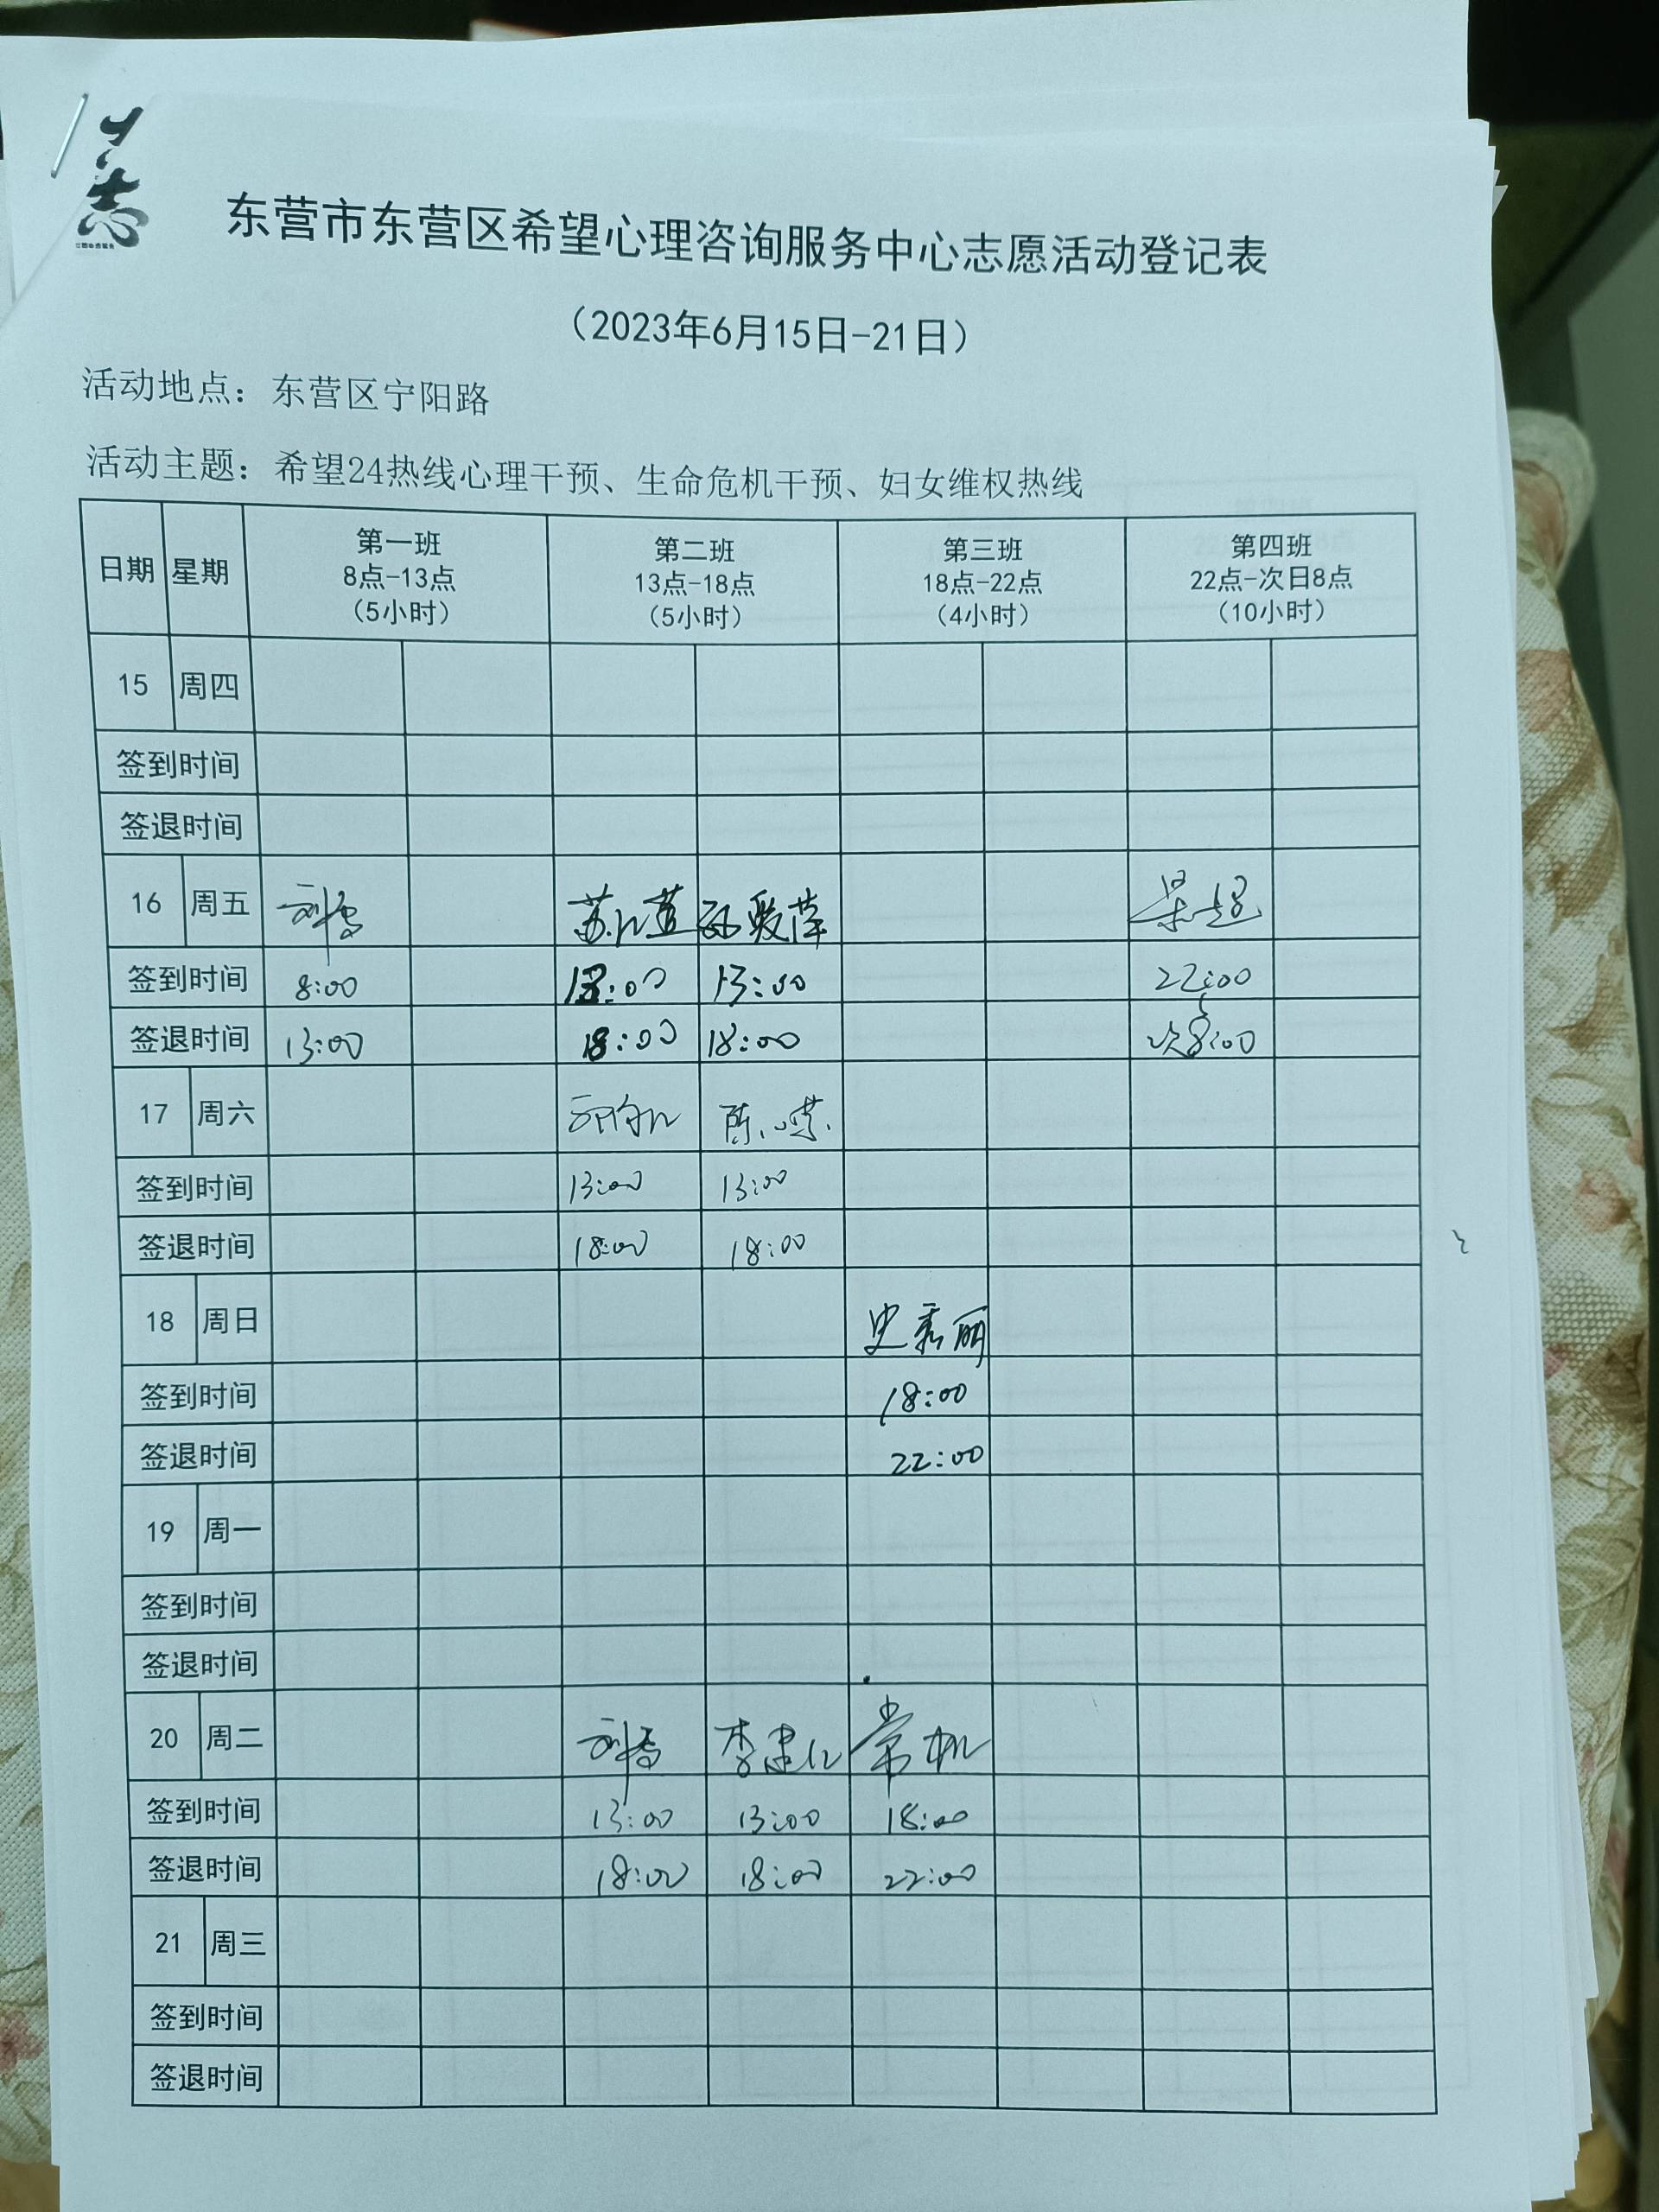 东营市东营区希望心理咨询服务中心志愿活动登记表
（2023年6月15日-21日）
活动地点：东营区宁阳路
活动主题：希望24热线心理干预、生命危机干预、妇女维权热线
日期 星期 第一班 8点-13点 （5小时） 第二班 13点-18点 （5小时） 第三班 18点-22点 （4小时） 第四班 22点-次日8点 （10小时）
15 周四
签到时间
签退时间
16 周五 孙爱萍 梁超
签到时间 8:00 13:00 13:00 22:00
签退时间 13:00 18:00 18:00 次8:00
17 周六
签到时间 13:00 13:00
签退时间 18:00 18:00
18 周日 史秀丽
签到时间 18:00
签退时间 22:00
19 周一
签到时间
签退时间
20 周二 李建红
签到时间 13:00 13:00 18:00
签退时间 18:00 18:00 22:00
21 周三
签到时间
签退时间